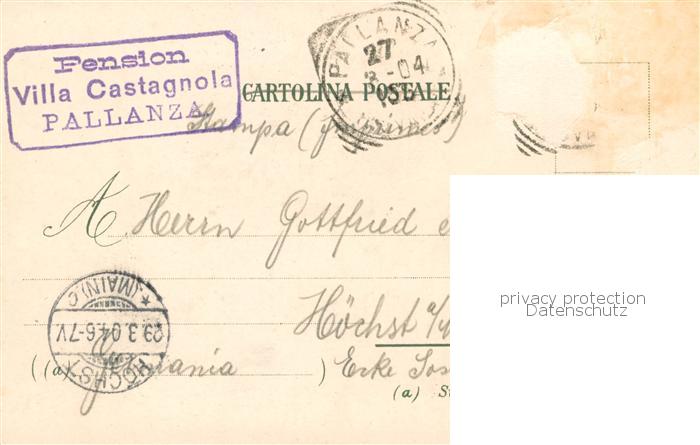 Pension
Villa Castagnola
PALLANZA
PALLANZA
27
3-04
CARTOLINA POSTALE
Stampa (Imprimés)
A Herrn Gottfried
Höchst a/
HÖCHST
29.3.04.6-7V
* (MAIN). C
((a) Germania ) Ecke
(a)
privacy protection
Datenschutz